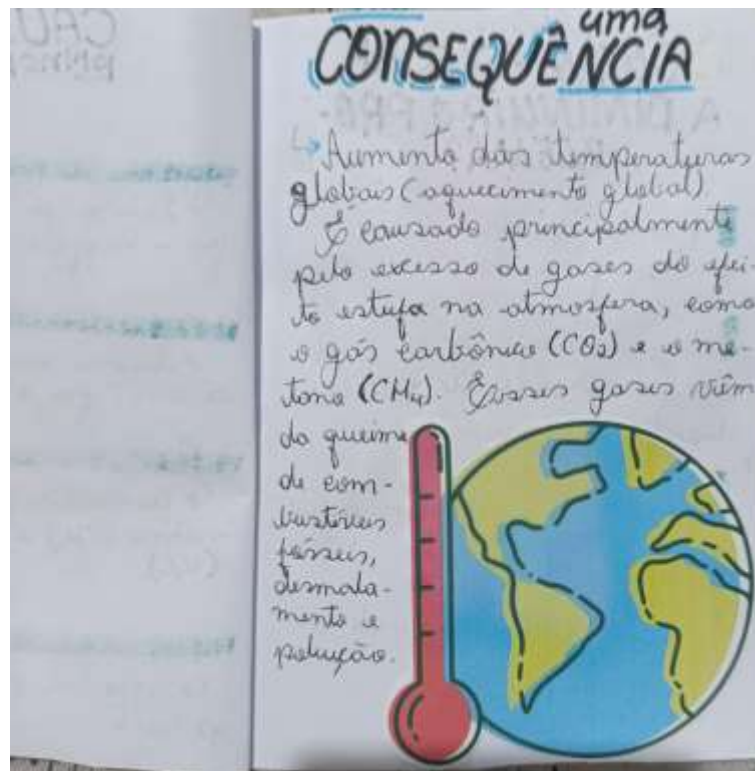 uma
CONSEQUÊNCIA
↳ Aumento das temperaturas
globais (aquecimento global)
É causado principalmente
pelo excesso de gases do efei-
to estufa na atmosfera, como
o gás carbônico (CO2) e o me-
tano (CH4). Esses gases vêm
da queima
de com-
bustíveis
fósseis,
desmata-
mento e
poluição.